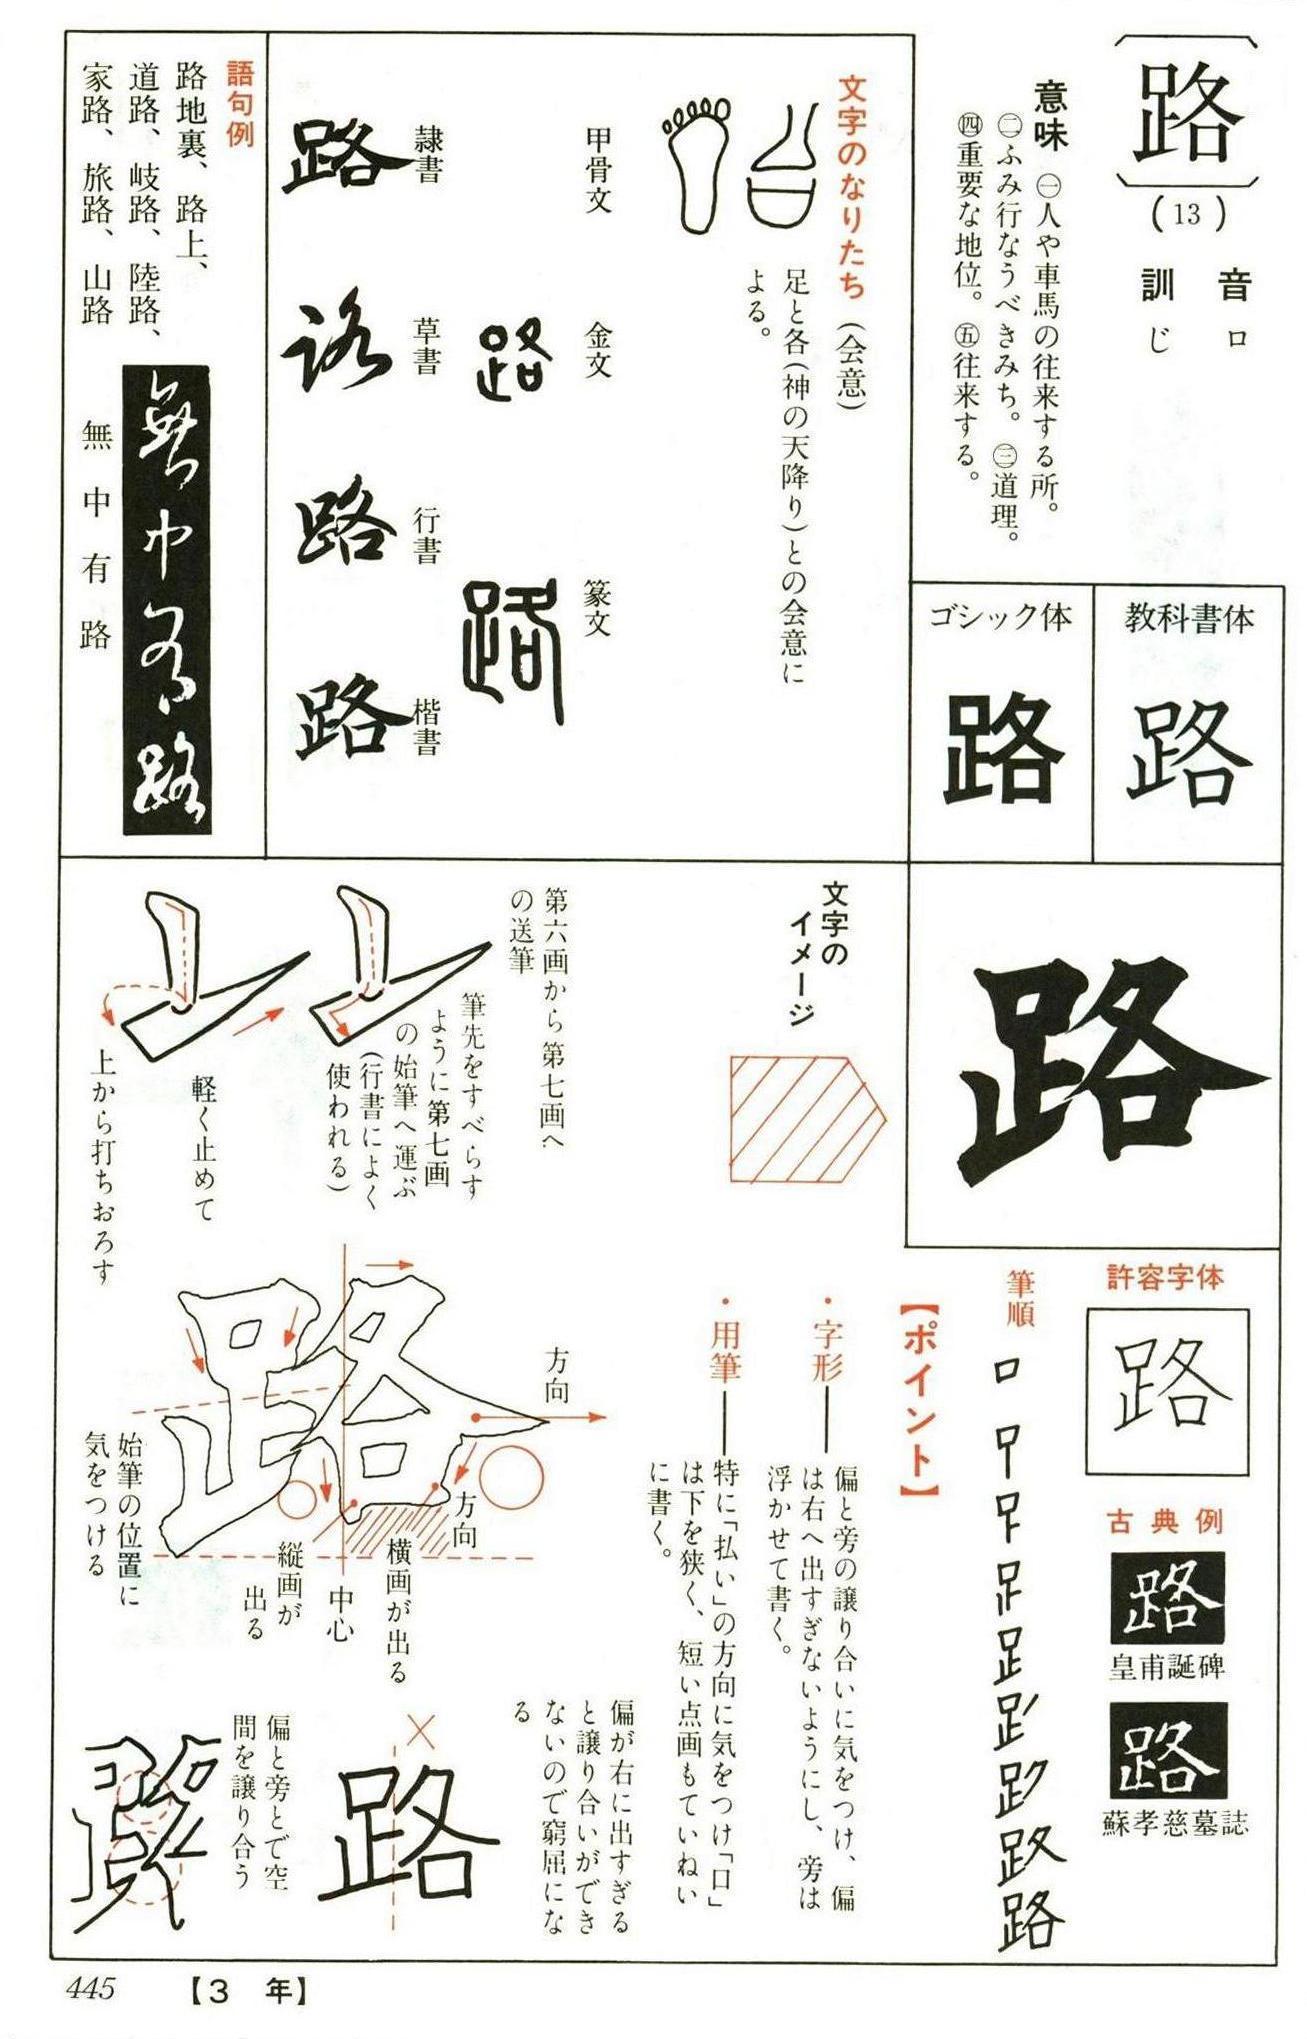 路
(13)
音 ロ
訓 じ
意味 ㊀人や車馬の往来する所。
㊁ふみ行なうべきみち。㊂道理。
㊃重要な地位。㊄往来する。
教科書体
路
ゴシック体
路
文字のなりたち(会意)
足と各(神の天降り)との会意に
よる。
甲骨文
金文
路
篆文
路
隷書
路
草書
路
行書
路
楷書
路
語句例
路地裏、路上、
道路、岐路、陸路、
家路、旅路、山路
無中有路
無中有路
路
許容字体
路
古典例
路
皇甫誕碑
路
蘇孝慈墓誌
筆順
路
【ポイント】
・字形──偏と旁の譲り合いに気をつけ、偏
は右へ出すぎないようにし、旁は
浮かせて書く。
・用筆──特に「払い」の方向に気をつけ「口」
は下を狭く、短い点画もていねい
に書く。
文字の
イメージ
第六画から第七画へ
の送筆
筆先をすべらす
ように第七画
の始筆へ運ぶ
(行書によく
使われる)
軽く止めて
上から打ちおろす
路
方向
方向
横画が出る
中心
縦画が
出る
始筆の位置に
気をつける
偏が右に出すぎる
と譲り合いができ
ないので窮屈にな
る
×
路
偏と旁とで空
間を譲り合う
路
445
【3 年】